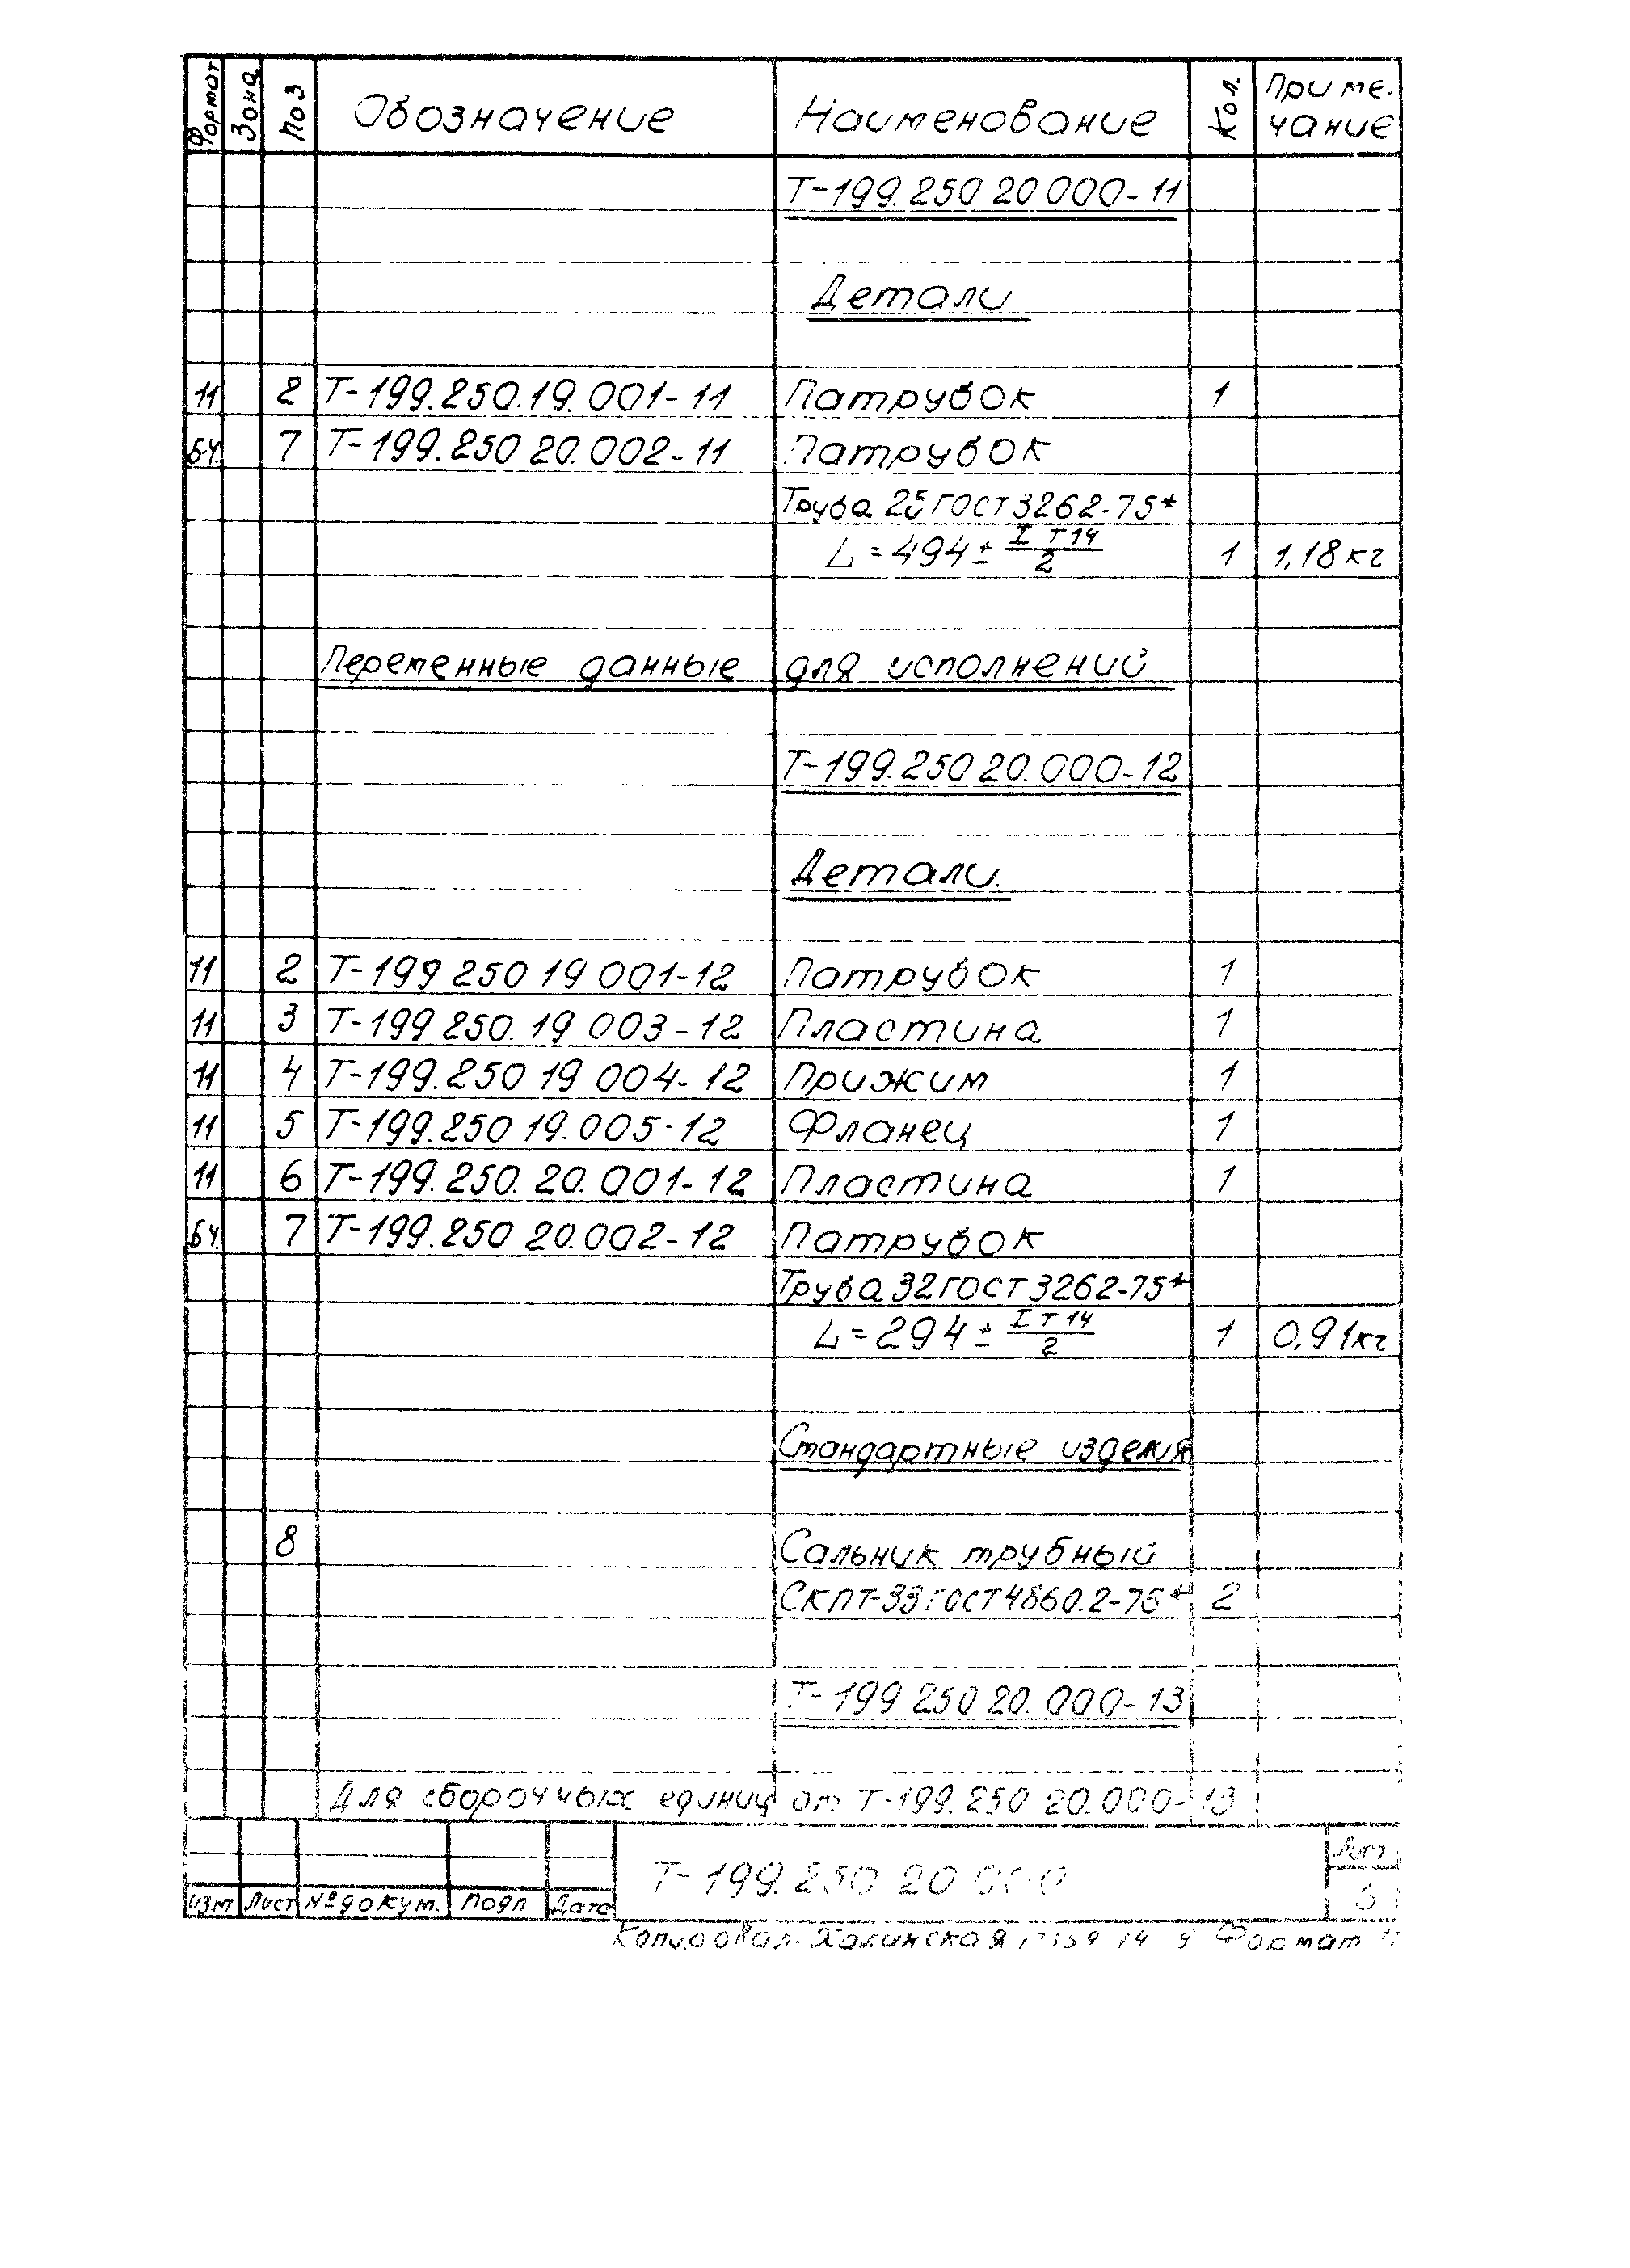 Формат Зона Поз Обозначение Наименование Кол. Приме-
чание
Т-199.250 20 000-11
Детали
11 2 Т-199.250.19.001-11 Патрубок 1
БЧ. 7 Т-199.250 20.002-11 Патрубок
Труба 25 ГОСТ 3262-75*
L=494± IT14/2 1 1,18кг
Переменные данные для исполнений
Т-199.250 20.000-12
Детали.
11 2 Т-199 250 19 001-12 Патрубок 1
11 3 Т-199 250.19 003-12 Пластина 1
11 4 Т-199.250 19 004-12 Прижим 1
11 5 Т-199.250 19.005-12 Фланец 1
11 6 Т-199.250.20.001-12 Пластина 1
БЧ. 7 Т-199.250 20.002-12 Патрубок
Труба 32 ГОСТ 3262-75*
L=294± IT14/2 1 0,91кг
Стандартные изделия
8 Сальник трубный
СКПТ-33 ГОСТ 4860.2-75* 2
Т-199 250 20.000-13
Для сборочных единиц от Т-199.250 20.000-13
Т-199.250 20 000 Лист
изм Лист № докум. Подп Дата
Копировал Формат